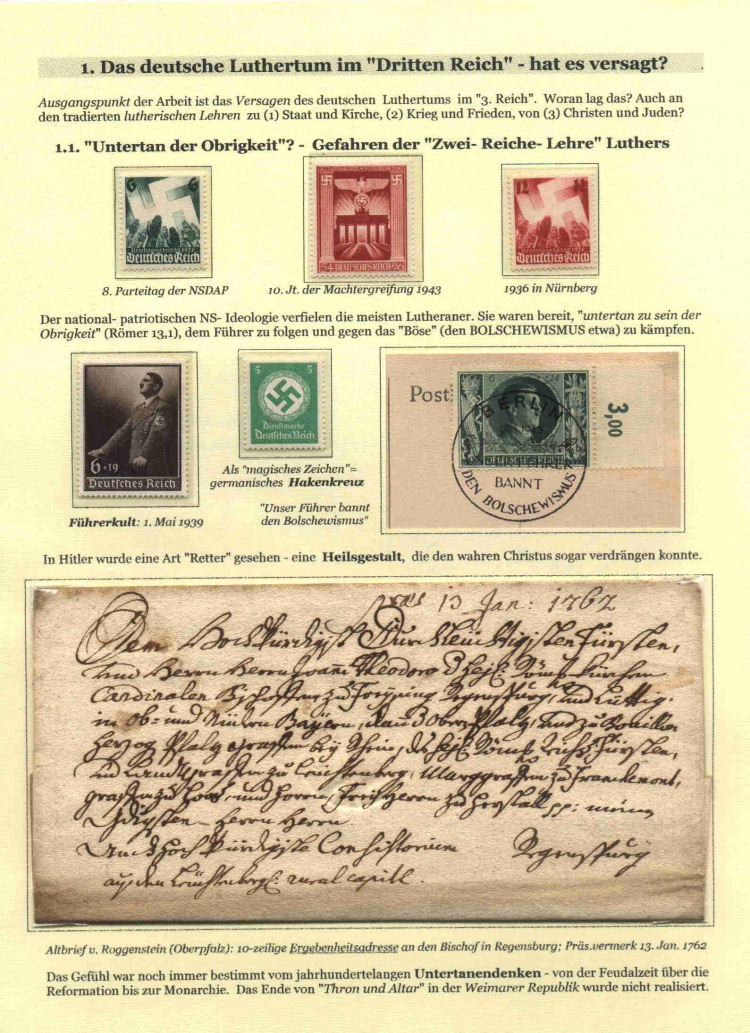 1. Das deutsche Luthertum im "Dritten Reich" - hat es versagt?
Ausgangspunkt der Arbeit ist das Versagen des deutschen Luthertums im "3. Reich". Woran lag das? Auch an
den tradierten lutherischen Lehren zu (1) Staat und Kirche, (2) Krieg und Frieden, von (3) Christen und Juden?
1.1. "Untertan der Obrigkeit"? - Gefahren der "Zwei- Reiche- Lehre" Luthers
6 6
Reichsparteitag 1936
Deutsches Reich
54 DEUTSCHES REICH 96
12 12
Reichsparteitag 1936
Deutsches Reich
8. Parteitag der NSDAP
10. Jt. der Machtergreifung 1943
1936 in Nürnberg
Der national- patriotischen NS- Ideologie verfielen die meisten Lutheraner. Sie waren bereit, "untertan zu sein der
Obrigkeit" (Römer 13,1), dem Führer zu folgen und gegen das "Böse" (den BOLSCHEWISMUS etwa) zu kämpfen.
6+19
Deutsches Reich
5 5
Dienstmarke
Deutsches Reich
Post
DEUTSCHES REICH
3,00
BERLIN
FÜHRER
BANNT
DEN BOLSCHEWISMUS
Als "magisches Zeichen"=
germanisches Hakenkreuz
Führerkult: 1. Mai 1939
"Unser Führer bannt
den Bolschewismus"
In Hitler wurde eine Art "Retter" gesehen - eine Heilsgestalt, die den wahren Christus sogar verdrängen konnte.
13 Jan: 1762
Dem Hochwürdigist Durchleuchtigisten Fürsten,
und Herrn Herrn Joann Theodoro
Cardinalen Bischoffen zu Freysing Regenspurg, und Luttig.
in Ob- und Nidern Bayern, Obern Pfalz, und zu Bouillon
Herzog Pfalz Graffen bey Rhein, Fürsten,
und Landtgraffen zu Leuchtenberg, Marggraffen zu Franchemont,
Graffen zu und Horn, Freyherrn zu Herstall
Herrn Herrn.
Consistorium Regenspurg
rural capitl.
Altbrief v. Roggenstein (Oberpfalz): 10-zeilige Ergebenheitsadresse an den Bischof in Regensburg; Präs.vermerk 13. Jan. 1762
Das Gefühl war noch immer bestimmt vom jahrhundertelangen Untertanendenken - von der Feudalzeit über die
Reformation bis zur Monarchie. Das Ende von "Thron und Altar" in der Weimarer Republik wurde nicht realisiert.